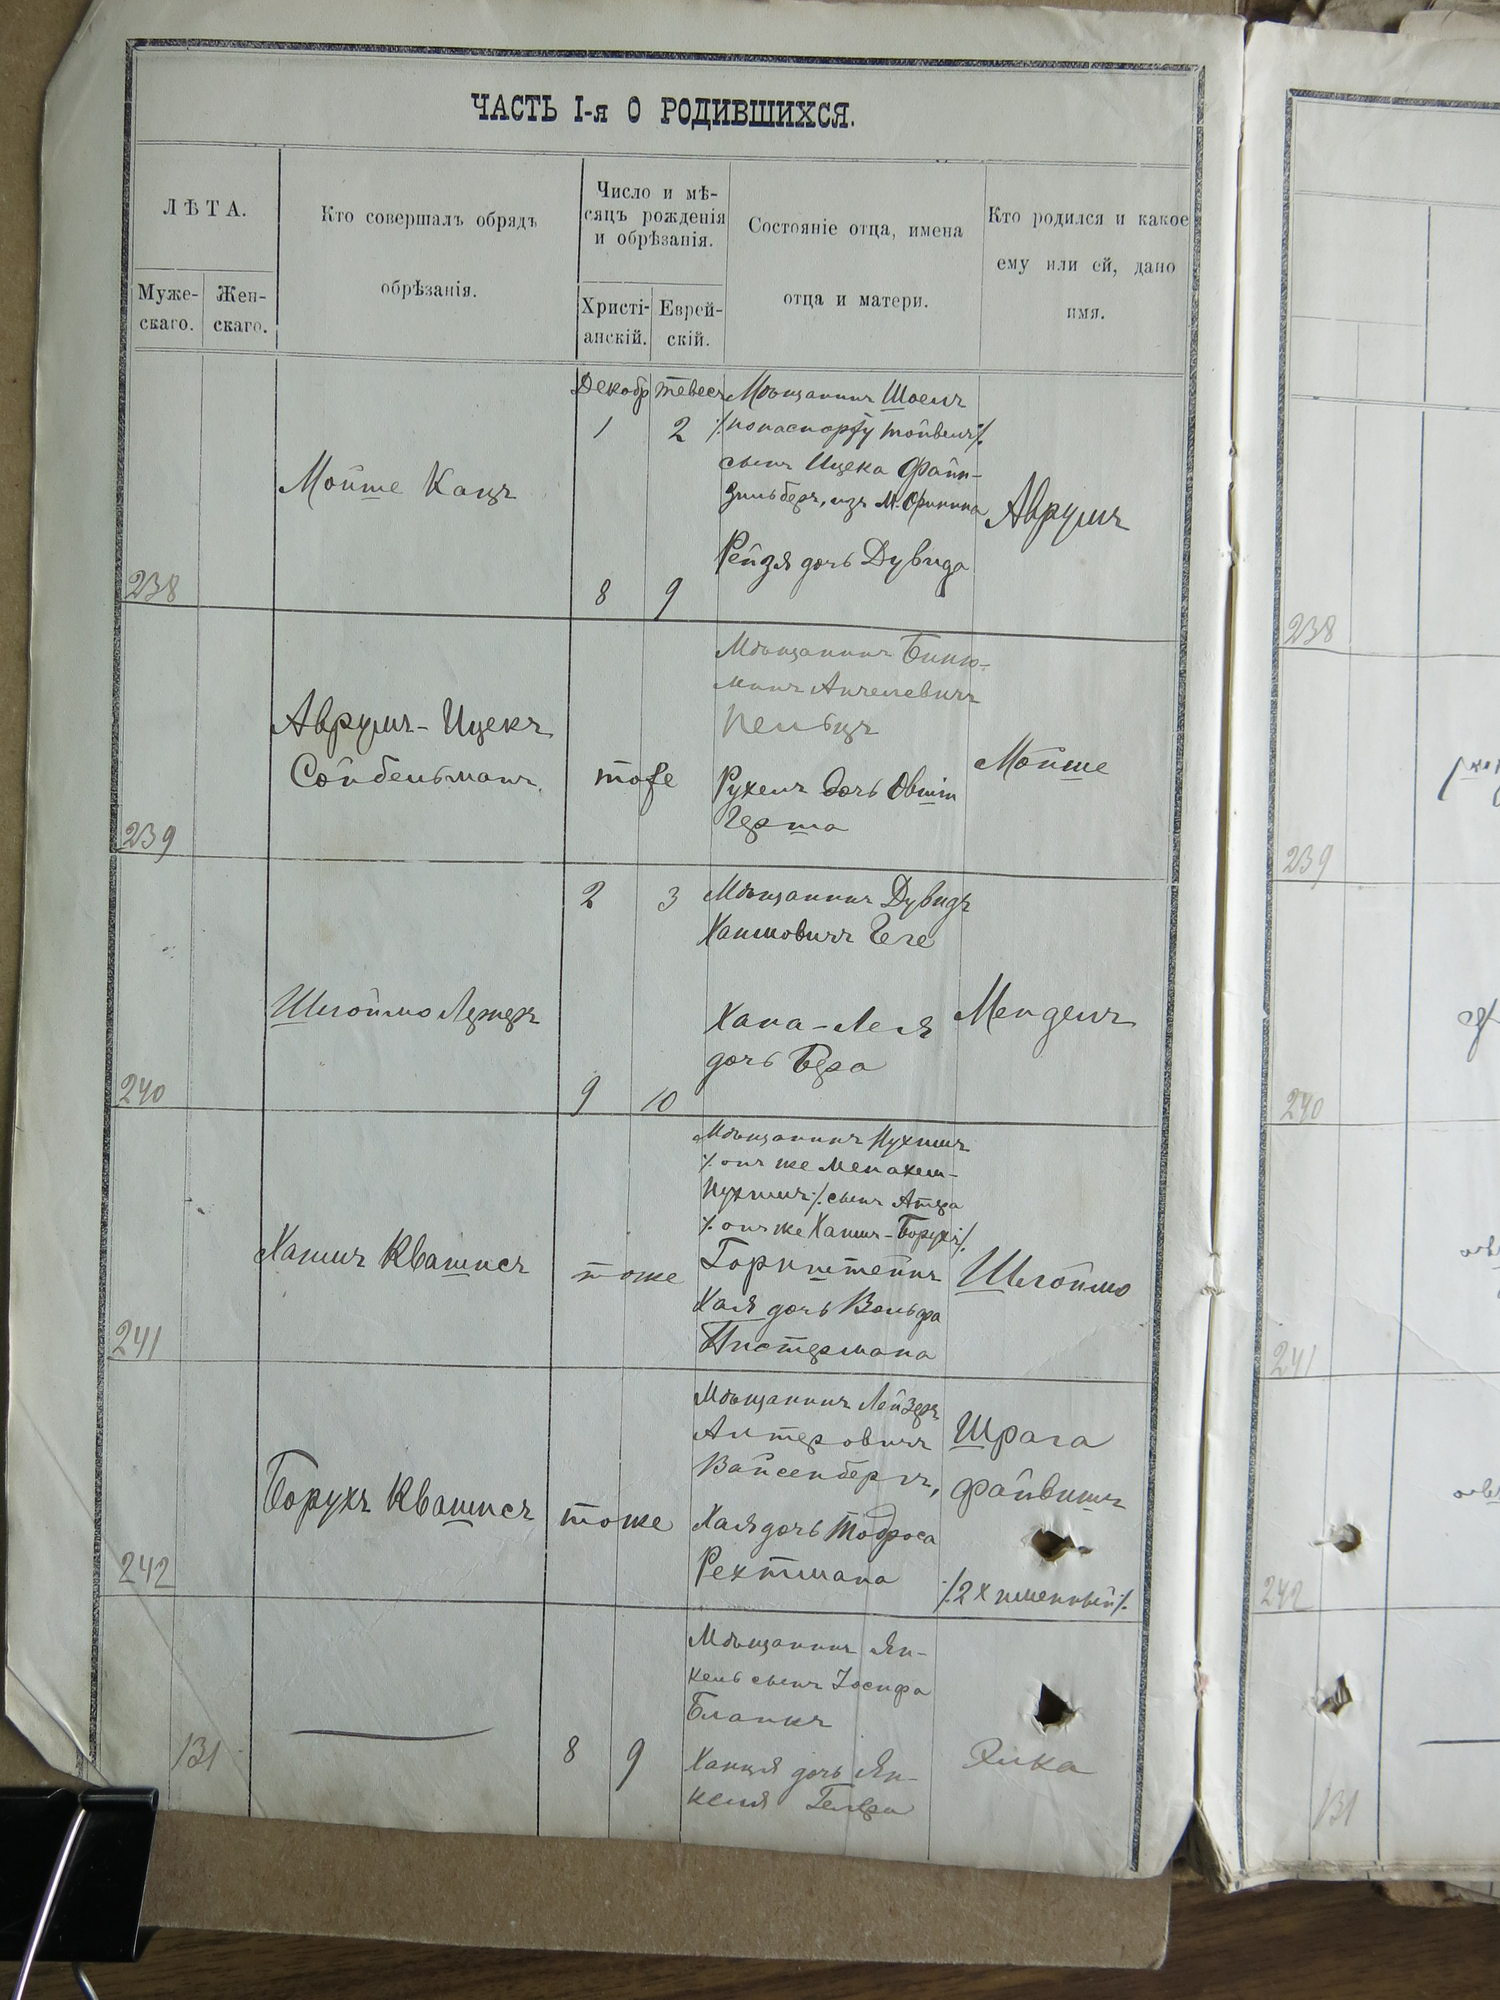 ЧАСТЬ I-я О РОДИВШИХСЯ.
ЛѢТА.
Муже-
скаго.
Жен-
скаго.
Кто совершалъ обрядъ
обрѣзанія.
Число и мѣ-
сяцъ рожденія
и обрѣзанія.
Христі-
анскій.
Еврей-
скій.
Состояніе отца, имена
отца и матери.
Кто родился и какое
ему или ей, дано
имя.
238
Мойше Кацъ
Декабр
1
8
Тевесъ
2
9
Мѣщанинъ Шоелъ
·/. по паспорту Тойвель ·/.
сынъ Ицека Файн-
зильберъ, изъ М. Оринина
Рейзя дочь Дувида
Аврумъ
239
Аврумъ-Ицекъ
Сойбельманъ
тоже
Мѣщанинъ Биню-
минъ Анчелевичъ
Пельцъ
Рухель дочь Овшія
Герша
Мойше
240
Шлоймо Лернеръ
2
9
3
10
Мѣщанинъ Дувидъ
Хаимовичъ Геге
Хана-Лея
дочь Бера
Мендель
241
Хаимъ Квашисъ
тоже
Мѣщанинъ Нухимъ
·/. онъ же Менахем-
Нухимъ ·/. сынъ
·/. онъ же Хаимъ-Борухъ ·/.
Горнштейнъ
Хая дочь Вольфа
Пистермана
Шлоймо
242
Борухъ Квашисъ
тоже
Мѣщанинъ Лейзеръ
Алтеровичъ
Вайсенбергъ,
Хая дочь Тодроса
Рехтмана
Шрага
Файвишъ
·/. 2х именный ·/.
131
8
9
Мѣщанинъ Ян-
кель сынъ Іосифа
Бланкъ
Ханця дочь Ян-
келя Гелера
Элка
238
239
240
241
242
131